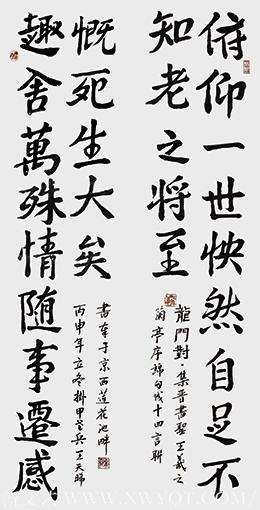 俯仰一世怏然自足不
知老之将至
龍門對·集晉書聖王羲之
蘭亭序 句 十四言聯
趣舍萬殊情隨事遷感
慨死生大矣
書 于京西蓮花池畔
丙申年立冬掛甲老兵王天
WWW.XWYQT.COM